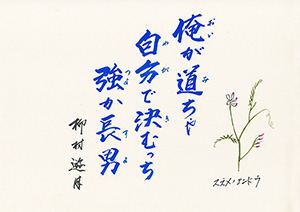 俺が道ぢゃ
自分で決むっち
強か長男
柳村
スズメノエンドウ